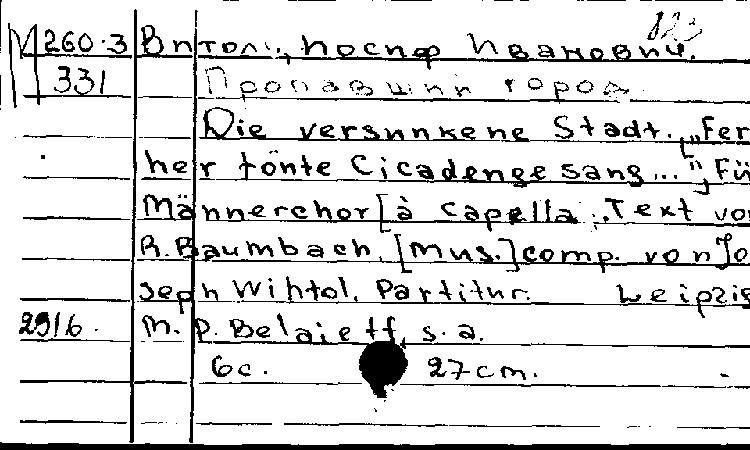 М 260-3 Витол, Иосиф Иванович.
331 Пропавший город.
Die versunkene Stadt. „Fer
her tönte Cicadengesang...", Fü
Männerchor [à capella. Text vo
R. Baumbach. [Mus.] comp. von Jo
seph Wihtol. Partitur. Leipzig
2916. M. P. Belaieff, s. a.
6 c. 27 cm.